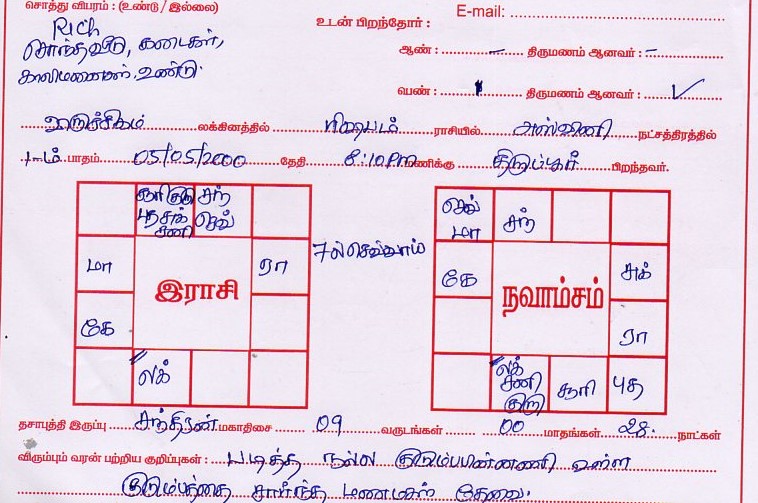 சொத்து விபரம் : (உண்டு / இல்லை)
E-mail:
உடன் பிறந்தோர் :
Rich
சொந்தவீடு, கடைகள்,
காலிமனைகள் உண்டு.
ஆண் : – திருமணம் ஆனவர் : –
பெண் : 1 திருமணம் ஆனவர் : ✓
விருச்சிகம் லக்கினத்தில் ரிஷபம் ராசியில் அஸ்வினி நட்சத்திரத்தில்
1-ம் பாதம் 05/05/2000 தேதி 8:10 PM மணிக்கு பிறந்தவர்.
சூரி குரு சந்
புத சுக் செவ்
சனி
மா ரா
இராசி
கே
லக்
7ல் செவ்வாய்
செவ் சந்
மா
கே சுக்
நவாம்சம்
ரா
லக் சூரி புத
சனி
குரு
தசாபுத்தி இருப்பு சந்திரன் மகாதிசை 09 வருடங்கள் 00 மாதங்கள் 28 நாட்கள்
விரும்பும் வரன் பற்றிய குறிப்புகள் : படித்த நல்ல குடும்பபின்னணி உள்ள
குடும்பத்தை சார்ந்த மணமகன் தேவை.